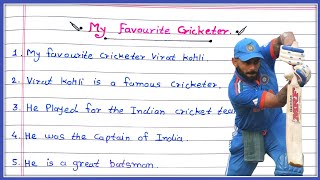 My Favourite Cricketer.
1. My favourite Cricketer Virat Kohli
2. Virat Kohli is a famous Cricketer.
3. He Played for the Indian cricket team
4. He was the Captain of India.
5. He is a great batsman.